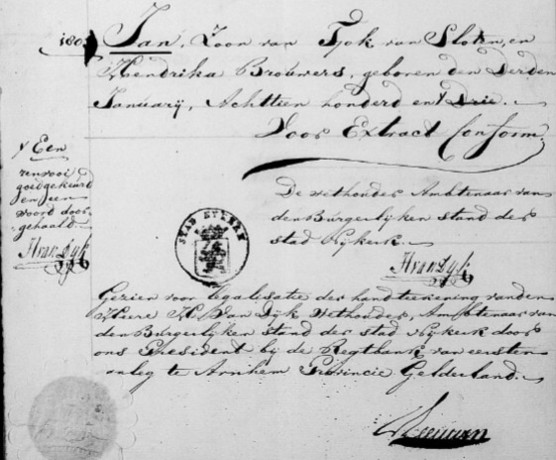 180
Jan, Zoon van Tjok van Sloten, en
Hendrika Brouwers, geboren den derden
Januarij, Achttien honderd en Drie.
Voor Extract Conform.
Een
renvooi
goedgekeurd
en een
woord door
gehaald.
HvanDyk
De wethouder Ambtenaar van
den Burgerlijken Stand der
stad Nijkerk.
HvanDyk
STAD NYKERK
Gezien voor legalisatie der handteekening van den
Heere H. Van Dijk Wethouder, Ambtenaar van
den Burgerlijken Stand der stad Nijkerk door
ons President bij de Regtbank van eersten
anleg te Arnhem Provincie Gelderland.